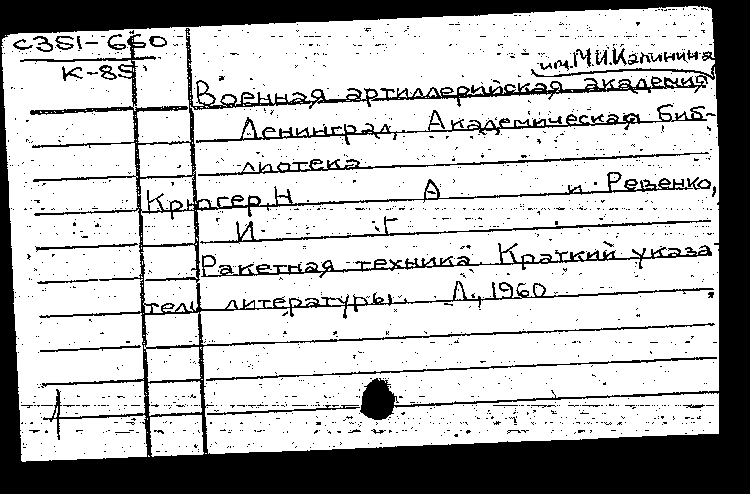 С351-660
К-85
им. М.И.Калинина
Военная артиллерийская академия
Ленинград, Академическая биб-
лиотека
Крюгер, Н. А и Ревенко,
И. Г
Ракетная техника. Краткий указа-
тель литературы. Л., 1960
1